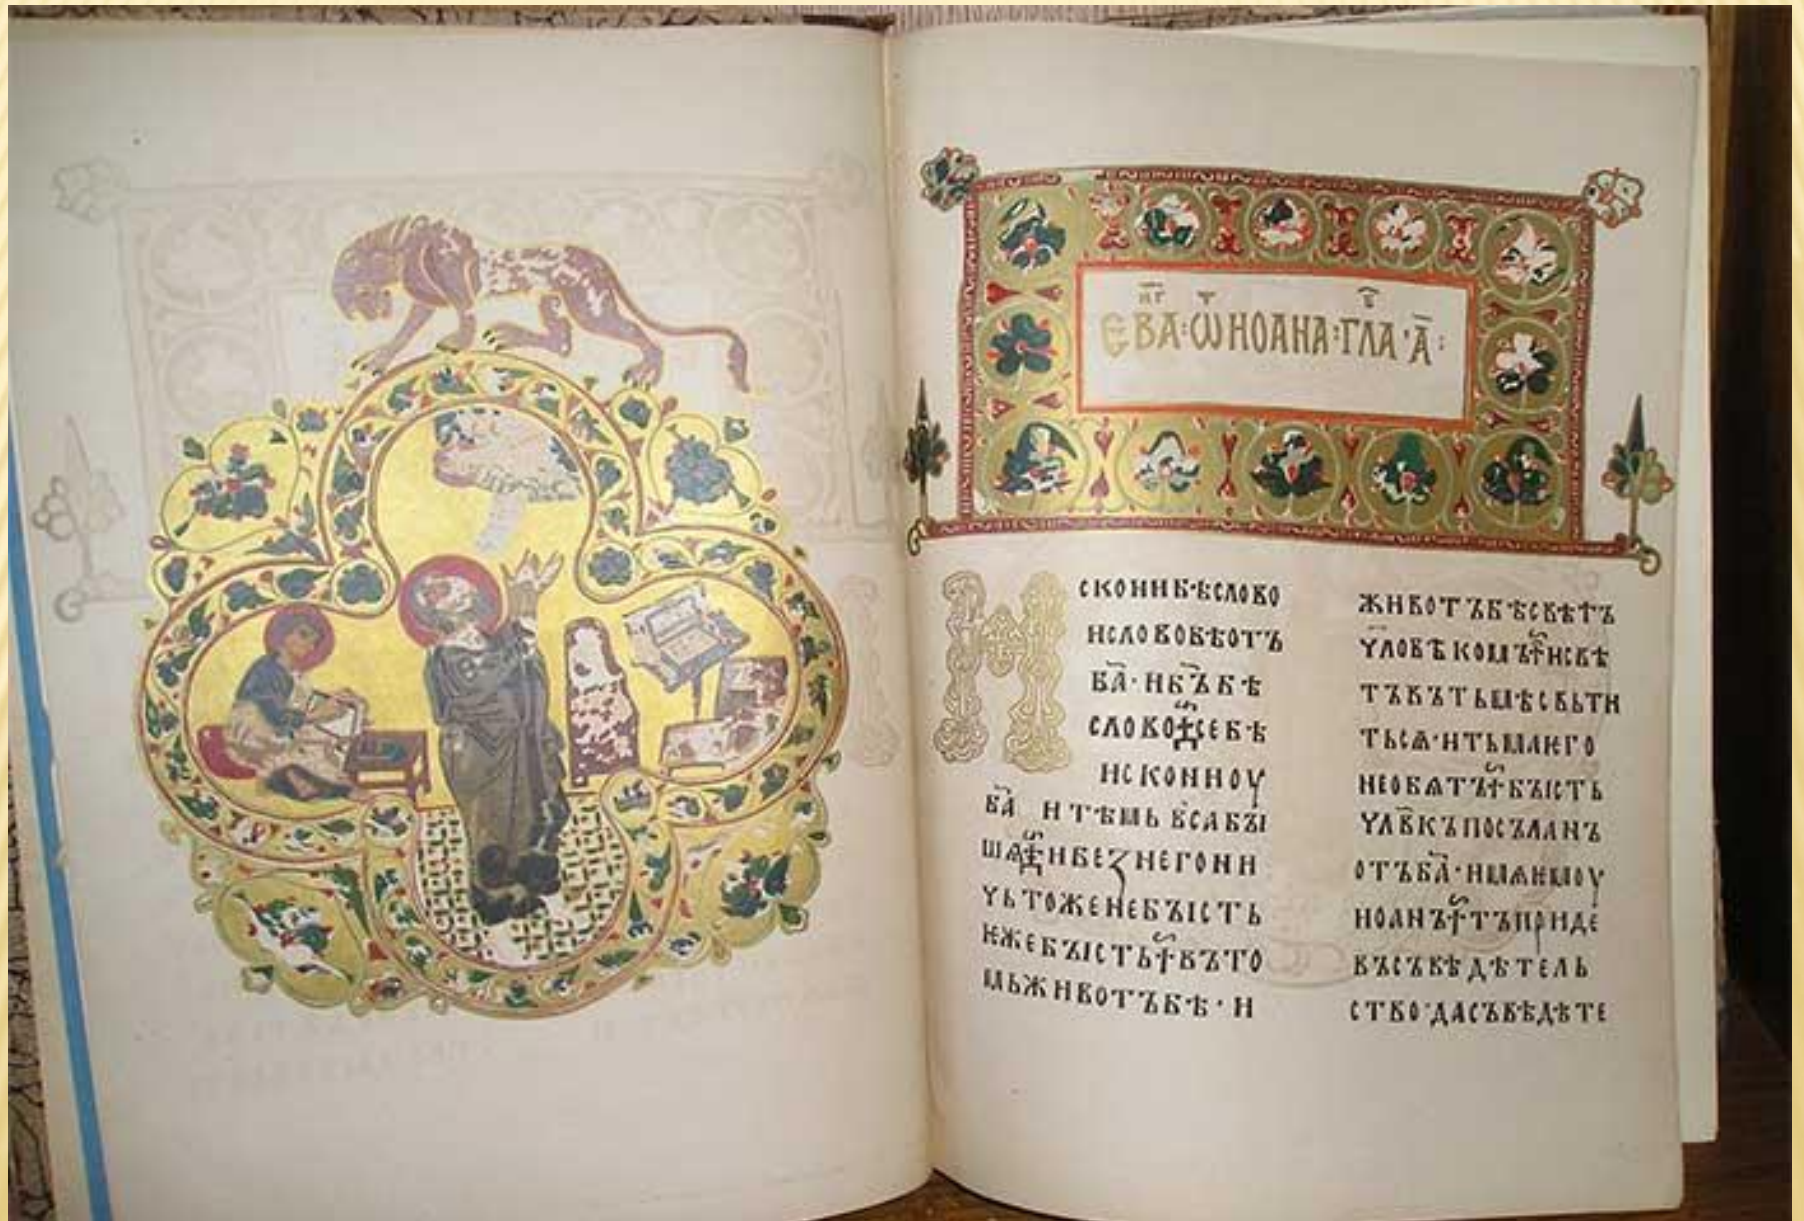 ЕВА҃:Ѿ ИОАНА:ГЛА·А҃:
ИСКОНИ БѢ СЛОВО
И СЛОВО БѢ ОТЪ
БА҃·И БЪ҃ БѢ
СЛОВО СЕ БѢ
ИСКОНИ ОУ
БА҃ И ТѢМЬ ВСА БЫ
ШѦ И БЕЗ НЕГО НИ
ЧЬТОЖЕ НЕ БЪІСТЬ
ѤЖЕ БЪІСТЬ ВЪ ТО
МЬ ЖИВОТЪ БѢ·И
ЖИВОТЪ БѢ СВѢТЪ
ЧЛОВѢКОМЪ И СВѢ
ТЪ ВЪ ТЬМѢ СВЬТИ
ТЬСѦ·И ТЬМА ѤГО
НЕ ОБѦТЪ БЪІСТЬ
ЧЛ҃ВКЪ ПОСЪЛАНЪ
ОТЪ БА҃·ИМѦ ѤМОУ
ИОАНЪ ТЪ ПРИДЕ
ВЪ СЪВѢДѢТЕЛЬ
СТВО·ДА СЪВѢДѢТЕ